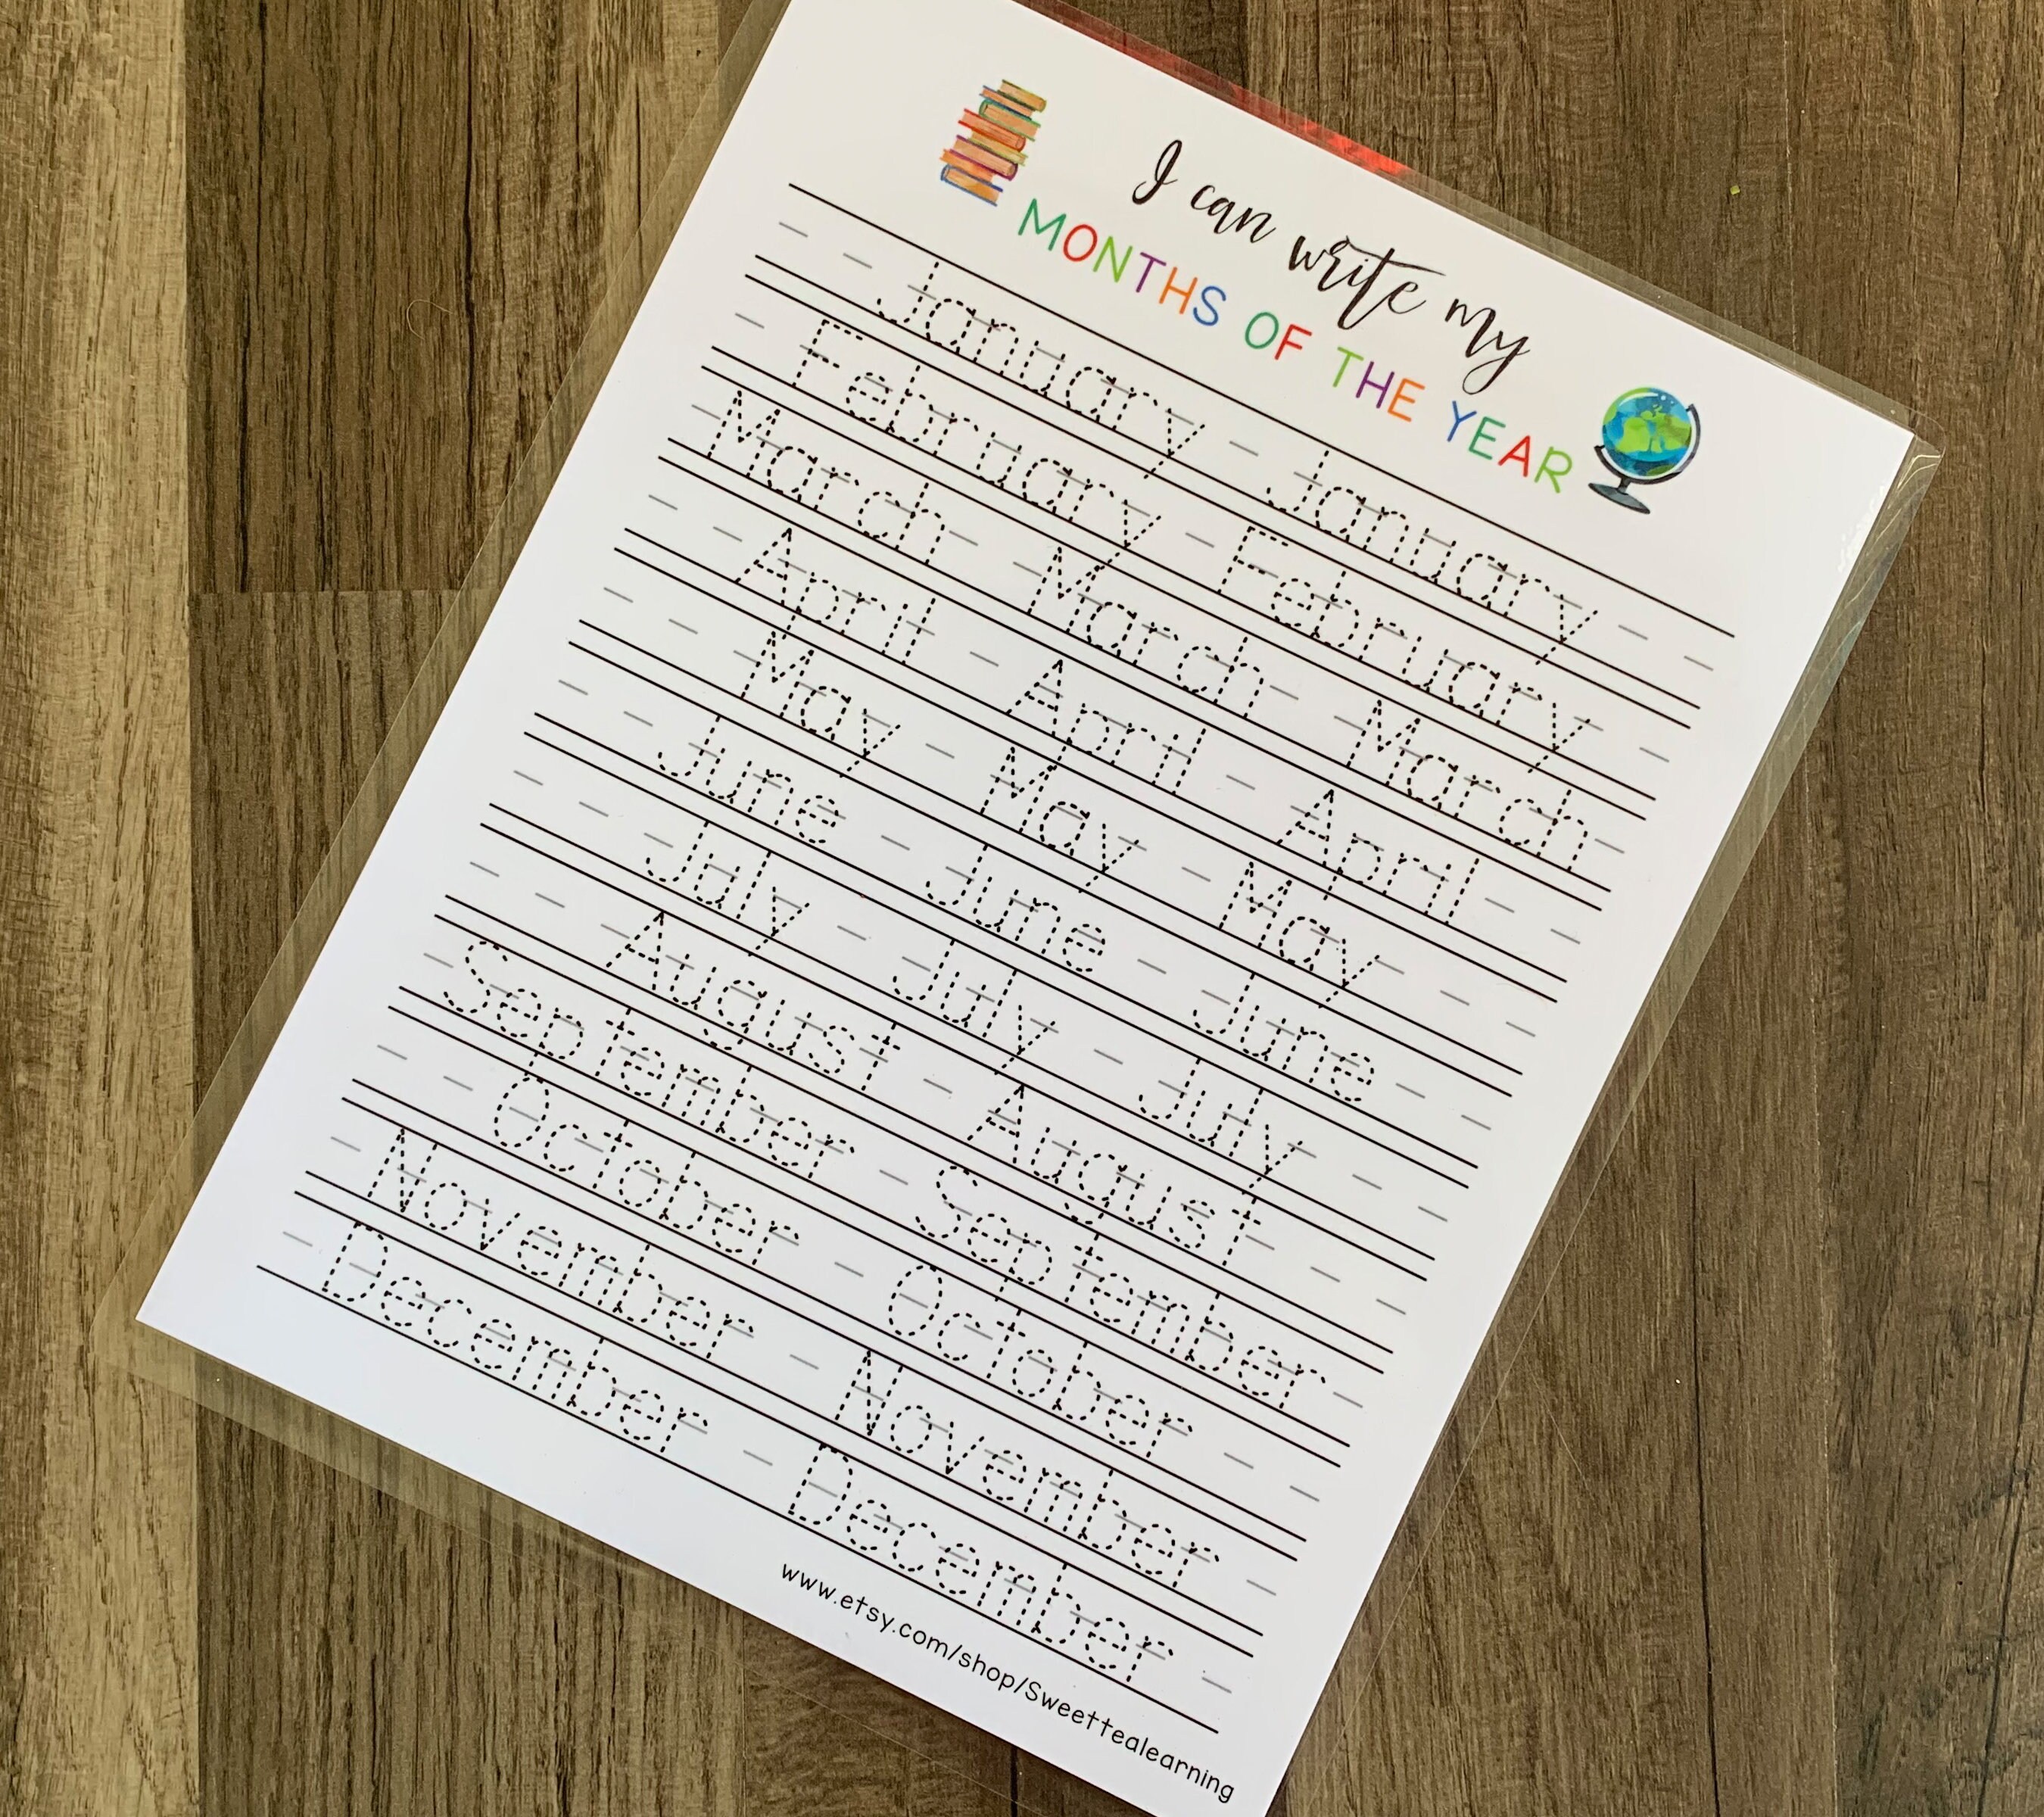 I can write my
MONTHS OF THE YEAR
January January
February February
March March March
April April April
May May May
June June June
July July July
August August
September September
October October
November November
December December
www.etsy.com/shop/Sweettealearning